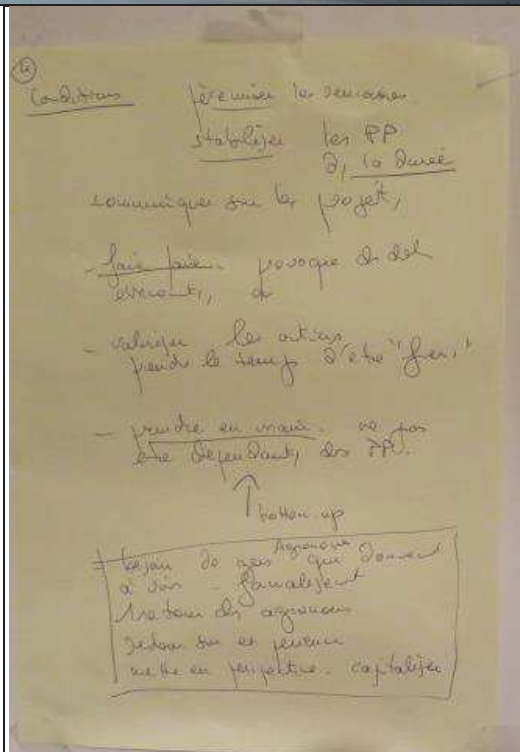 Conditions pérenniser les rencontres
stabiliser les PP
ds la durée
communiquer sur les projets,
- faire faire. provoque des
- valoriser les actions
prendre le temps d'être "fiers"
- prendre en main. ne pas
être dépendants des PP.
bottom up
besoin de gens Agronomes qui donnent
à voir - formalisent
retour des agronomes
retour sur et
mettre en perspective. capitaliser